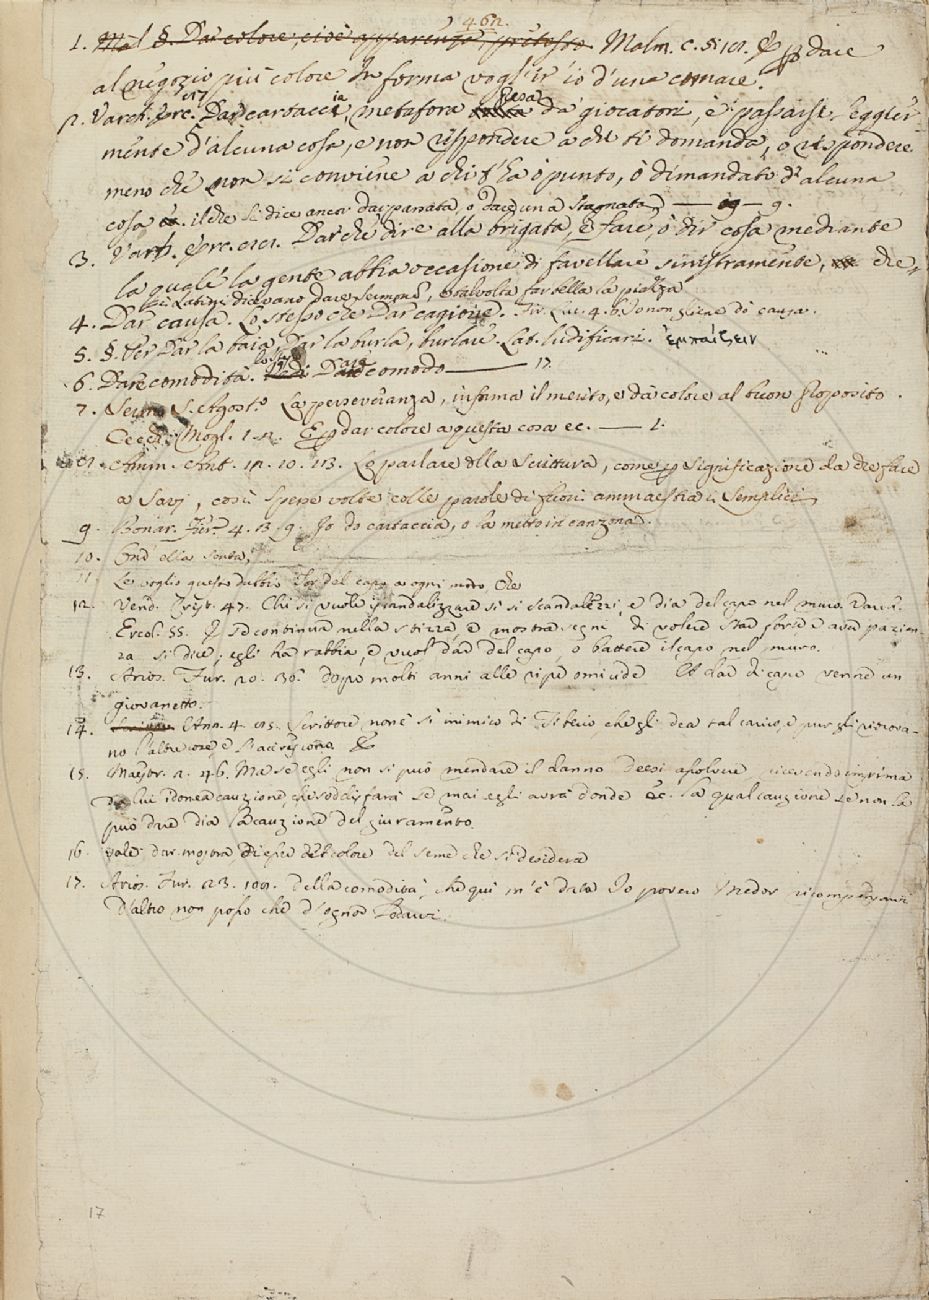 462.
1. Mal §. Dar colore, cioè apparenza, pretesto. Malm. c. 5. E p dare
al negozio più colore In forma vogl'ir io d'una comare.
2. Varch. Erc. 87 § Dar cartaccia, metafora presa da' giocatori, è passarsi leggier-
mente d'alcuna cosa, e non rispondere a chi ti domanda, o rispondere
meno che non si conviene a chi t'ha o punto, o dimandato d'alcuna
cosa, il che si dice ancor dar passata, o dare una stagnata — 9.
3. Varch. Erc. Dar che dire alla brigata, è fare, o dir cosa mediante
la quale la gente abbia occasione di favellare sinistramente, che
i Latini dicevano dare sermonem, e talvolta far bella la piazza
4. Dar causa. Lo stesso che Dar cagione. Tir. Liv. 4. 6. Io non gliene dò causa.
5. §. Per Dar la baia, Dar la burla, burlare. Lat. ludificari. ἐμπαίζειν
6. Dare comodità. Lo stesso Dare comodo — 17.
7. Serm. S. Agost.o La perseveranza, infama il merito, e dà colore al buon proposito.
Cecch. Mogl. 1. 2. E p dar colore a questa cosa ec. — 1.
8. Amm. Ant. 12. 10. 113. Lo parlare della Scrittura, come p significazione dà che fare
a Savj, così spesse volte colle parole di fuori ammaestra i Semplici
9. Bonar. Fier. 4. 3. 9. Io do cartaccia, o la metto in canzona.
10. Ond' ella senta,
11. Le voglio questo dubbio Tor del capo a ogni modo, che
12. Vend. Crist. 47. Chi si vuole iscandalizzare si si scandalezzi, e dia del capo nel muro. Varch.
Ercol. 55. E se continua nella stizza, e mostra segni di volere star forte e aver pazien-
za si dice; egli ha rabbia, e vuol dar del capo, o battere il capo nel muro.
13. Arios. Fur. 20. 36. dopo molti anni alle ripe omicide A dar di capo venne un
giovanetto.
14. Ann. 4. 85. Scrittore non è sì nimico di Tiberio, che gli dea tal carico, e pur gli ritrova-
no l'altre cose, e s'accrescono.
15. Maestr. 2. 46. Ma se egli non si può mendare il danno deesi assolvere, ricevendo imprima
da lui idonea cauzione, che soddisfarà se mai egli avrà donde ec. la qual cauzione se non la
può dare dia la cauzione del giuramento.
16. vale dar mostra di esser del colore del seme che si desidera
17. Arios. Fur. 23. 108. Della comodità, che qui m'è data Io povero Medor ricompensarvi
D'altro non posso che d'ognor lodarvi.
17